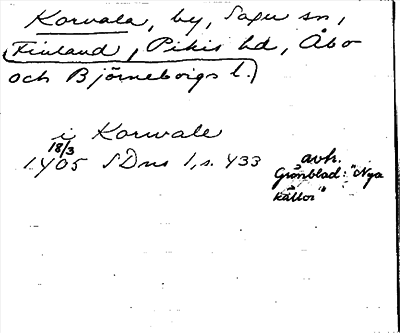 Korvala, by, Sagu sn,
(Finland, Pikis hd, Åbo
och Björneborgs l.)
i Korvale
18/3
1405 SDns 1, s. 433 avh.
Grönblad: "Nya
källor"